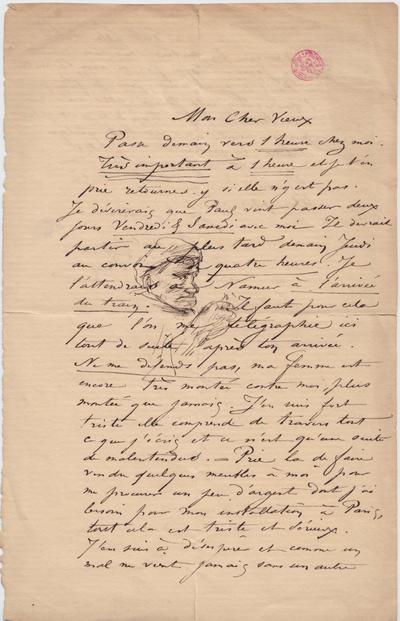 Mon Cher Vieux
Passe demain vers 1 heure chez moi.
Très important à 1 heure et je t'en
prie retournes-y si elle n'y est pas.
Je désirerais que Paul vint passer deux
jours Vendredi & Samedi avec moi Il devrait
partir au plus tard demain Jeudi
au convoi quatre heures. Je
l'attendrais à Namur à l'arrivée
du train. Il faut pour cela
que l'on me télégraphie ici
tout de suite après ton arrivée.
Ne me défends pas, ma femme est
encore très montée contre moi plus
montée que jamais J'en suis fort
triste elle comprend de travers tout
ce que j'écris et ce n'est qu'une suite
de malentendus. — Prie la de faire
vendre quelques meubles à moi pour
me procurer un peu d'argent dont j'ai
besoin pour mon installation à Paris,
tout cela est triste et sérieux.
J'en suis à désespéré et comme un
mal ne vient jamais sans un autre